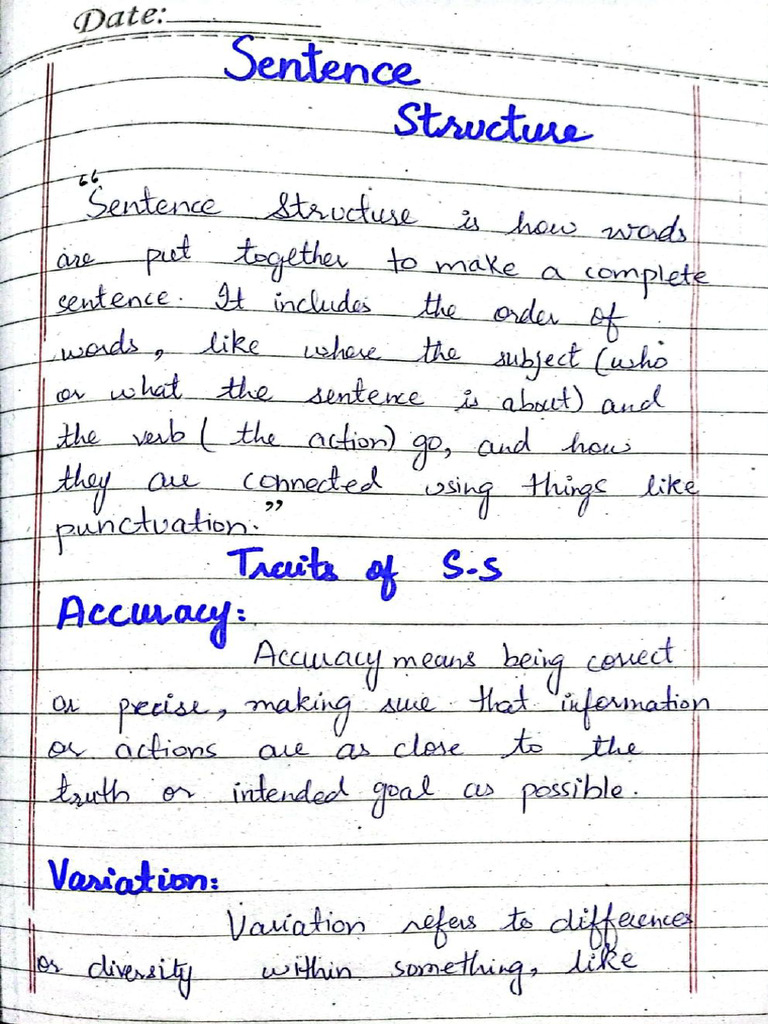 Date:
Sentence
Structure
“Sentence Structure is how words
are put together to make a complete
sentence. It includes the order of
words, like where the subject (who
or what the sentence is about) and
the verb ( the action) go, and how
they are connected using things like
punctuation.”
Traits of S-S
Accuracy:
Accuracy means being correct
or precise, making sure that information
or actions are as close to the
truth or intended goal as possible.
Variation:
Variation refers to differences
or diversity within something, like